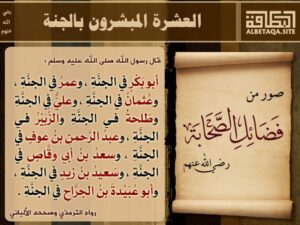 العشرة المبشرون بالجنة
رضي
الله
عنهم
البطاقة
ALBETAQA.SITE
قال رسول الله صلى الله عليه وسلم :
أبو بَكْرٍ في الجنَّةِ ، وعمرُ في الجنَّةِ ،
وعُثمانُ في الجنَّةِ ، وعليٌّ في الجنَّةِ
وطلحةُ في الجنَّةِ والزُّبَيْرُ في
الجنَّةِ ، وعبدُ الرَّحمنِ بنُ عوفٍ في
الجنَّةِ ، وسعدُ بنُ أبي وقَّاصٍ في
الجنَّةِ ، وسعيدُ بنُ زيدٍ في الجنَّةِ ،
وأبو عُبَيْدةَ بنُ الجرَّاحِ في الجنَّةِ .
رواه الترمذي وصححه الألباني
صور من
فضائل الصحابة
رضي الله عنهم